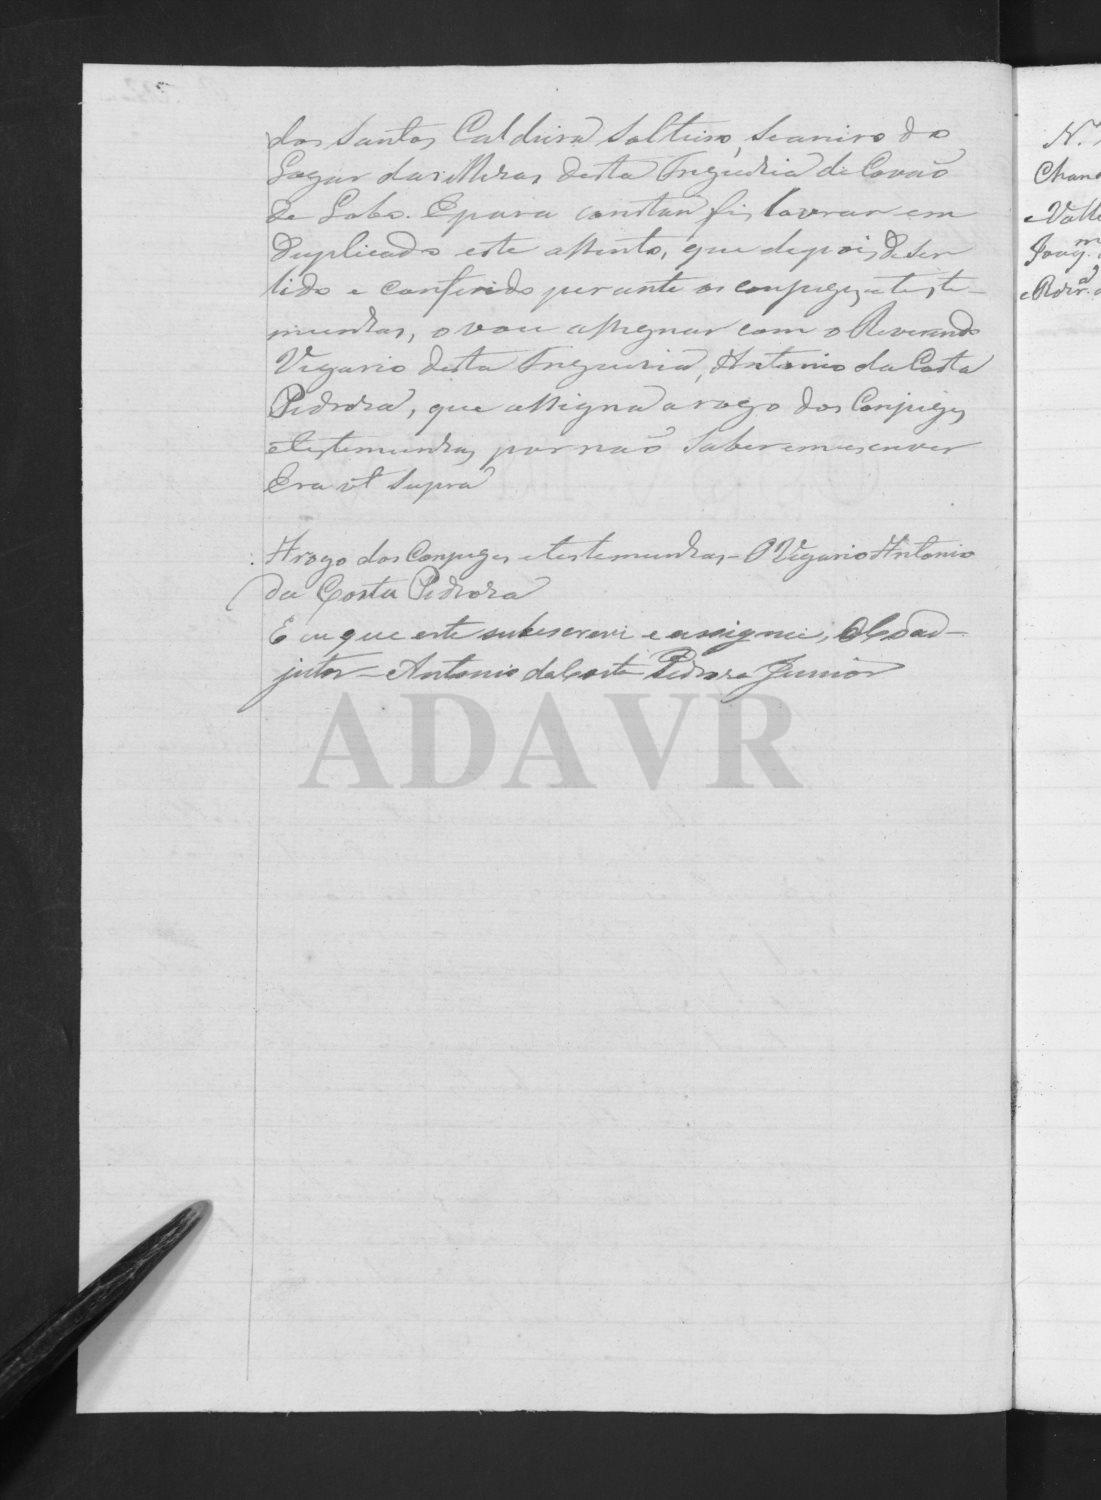 dos Santos Caldeira Solteiro, Seareiro do
Logar das Meras desta Freguesia de Covão
de Lobo. E para constar fiz lavrar em
duplicado este assento, que depois de ser
lido e conferido perante os conjuges, e teste-
munhas, o vou assignar com o Reverendo
Vigario desta Freguesia, Antonio da Costa
Pedrosa, que assigna a rogo dos Conjuges,
e testemunhas, por não saberem escrever
Era ut supra
A rogo dos Conjuges e testemunhas - O Vigario Antonio
da Costa Pedrosa
E eu que este subescrevi e assignei, O Coad-
jutor - Antonio da Costa Pedrosa Junior
ADAVR
N.
Chan
e Valle
Joaq.m
e Roza